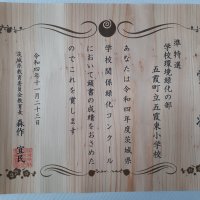 準特選
学校環境緑化の部
五霞町立五霞東小学校
あなたは令和四年度茨城県
学校関係緑化コンクール
において頭書の成績をおさめた
のでこれを賞します
令和四年十一月二十三日
茨城県教育委員会教育長 森作 宜民